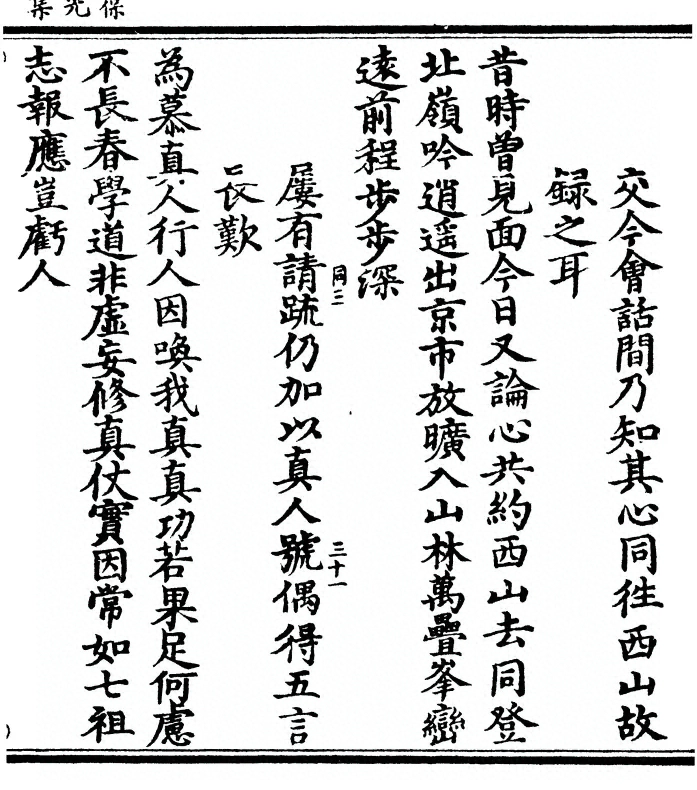 交今會話間乃知其心同徃西山故
録之耳
昔時曾見面今日又論心共約西山去同登
北嶺吟逍遥出京市放曠入山林萬疊峯巒
遠前程步步深
同三 三十一
屢有請䟽仍加以真人號偶得五言
長歎
為慕真人行人因喚我真真功若果足何慮
不長春學道非虛妄修真仗實因常如七祖
志報應豈虧人